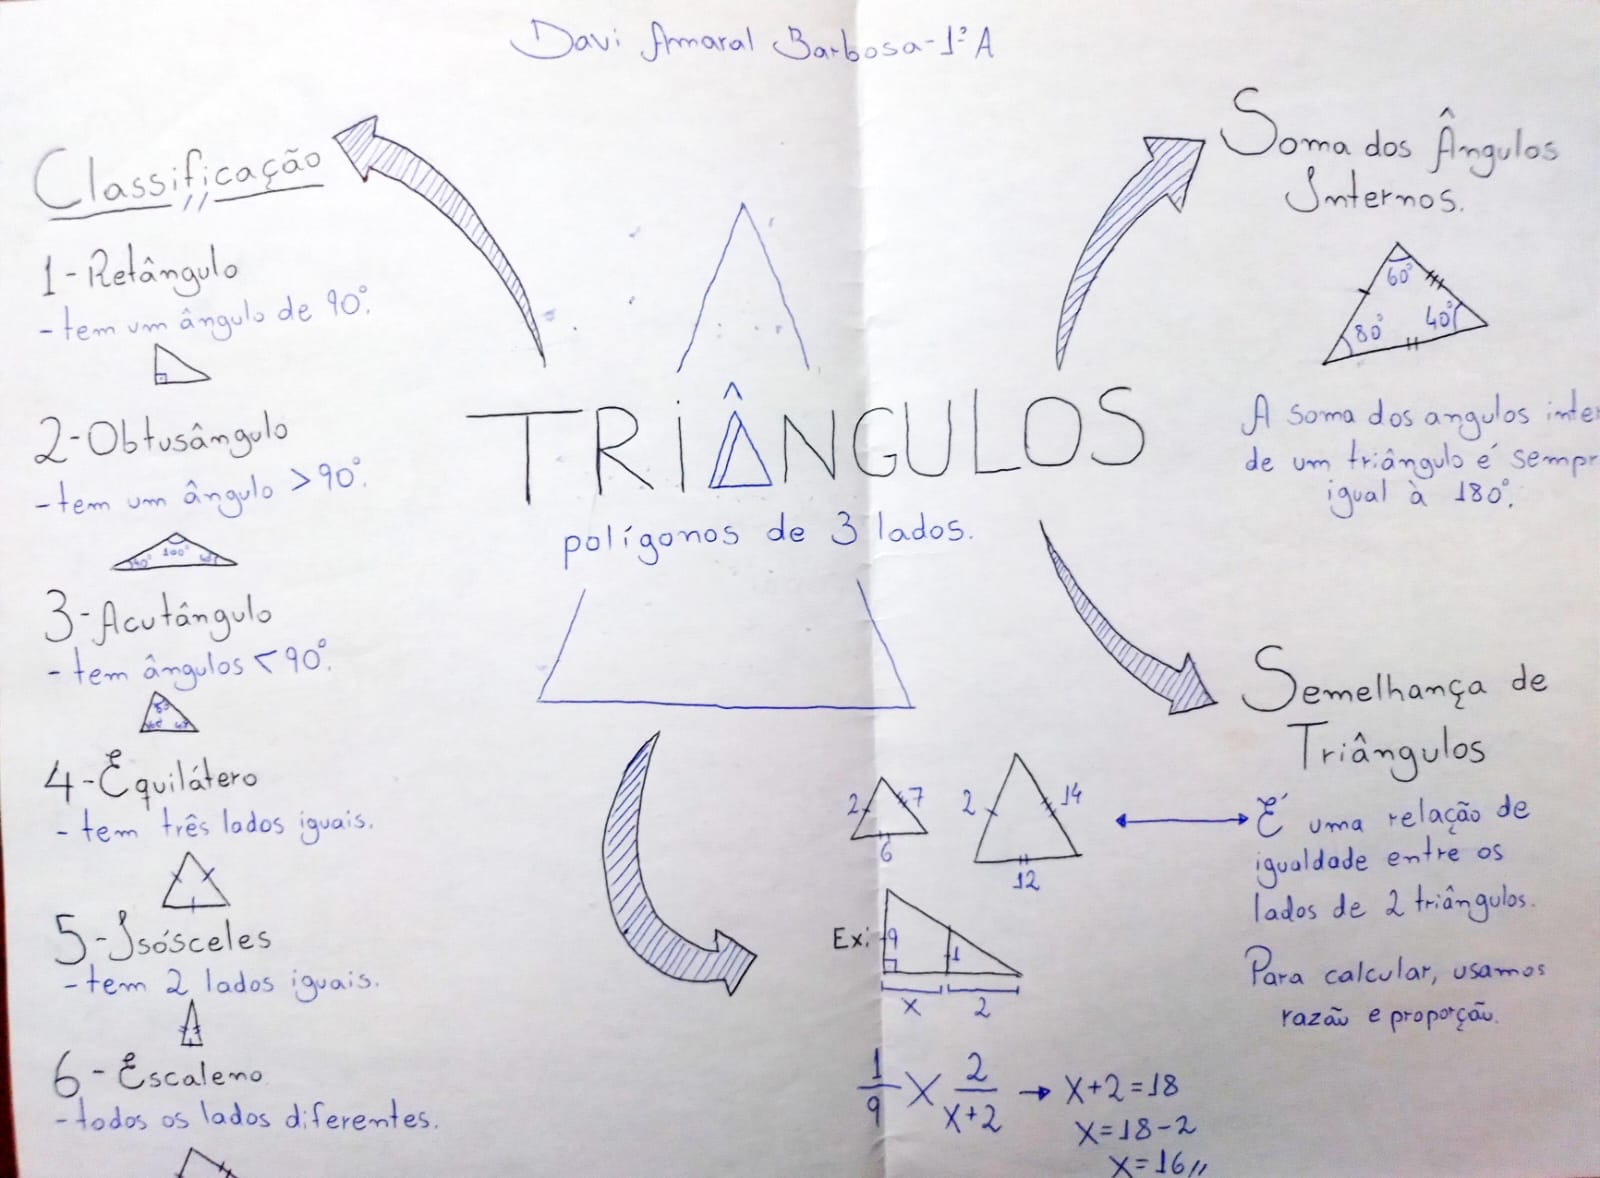 Davi Amaral Barbosa-1ºA
Classificação
1-Retângulo
-tem um ângulo de 90º.
2-Obtusângulo
-tem um ângulo >90º.
100°
40°
3-Acutângulo
-tem ângulos <90º.
4-Equilátero
-tem três lados iguais.
5-Isósceles
-tem 2 lados iguais.
6-Escaleno
-todos os lados diferentes.
TRIÂNGULOS
polígonos de 3 lados.
Soma dos Ângulos
Internos.
60°
80°
40°
A soma dos angulos inter
de um triângulo é sempr
igual à 180º.
Semelhança de
Triângulos
2 7
6
2 14
12
É uma relação de
igualdade entre os
lados de 2 triângulos.
Para calcular, usamos
razão e proporção.
Ex: 9 1
x 2
1/9 X 2/x+2 → x+2=18
x=18-2
x=16//